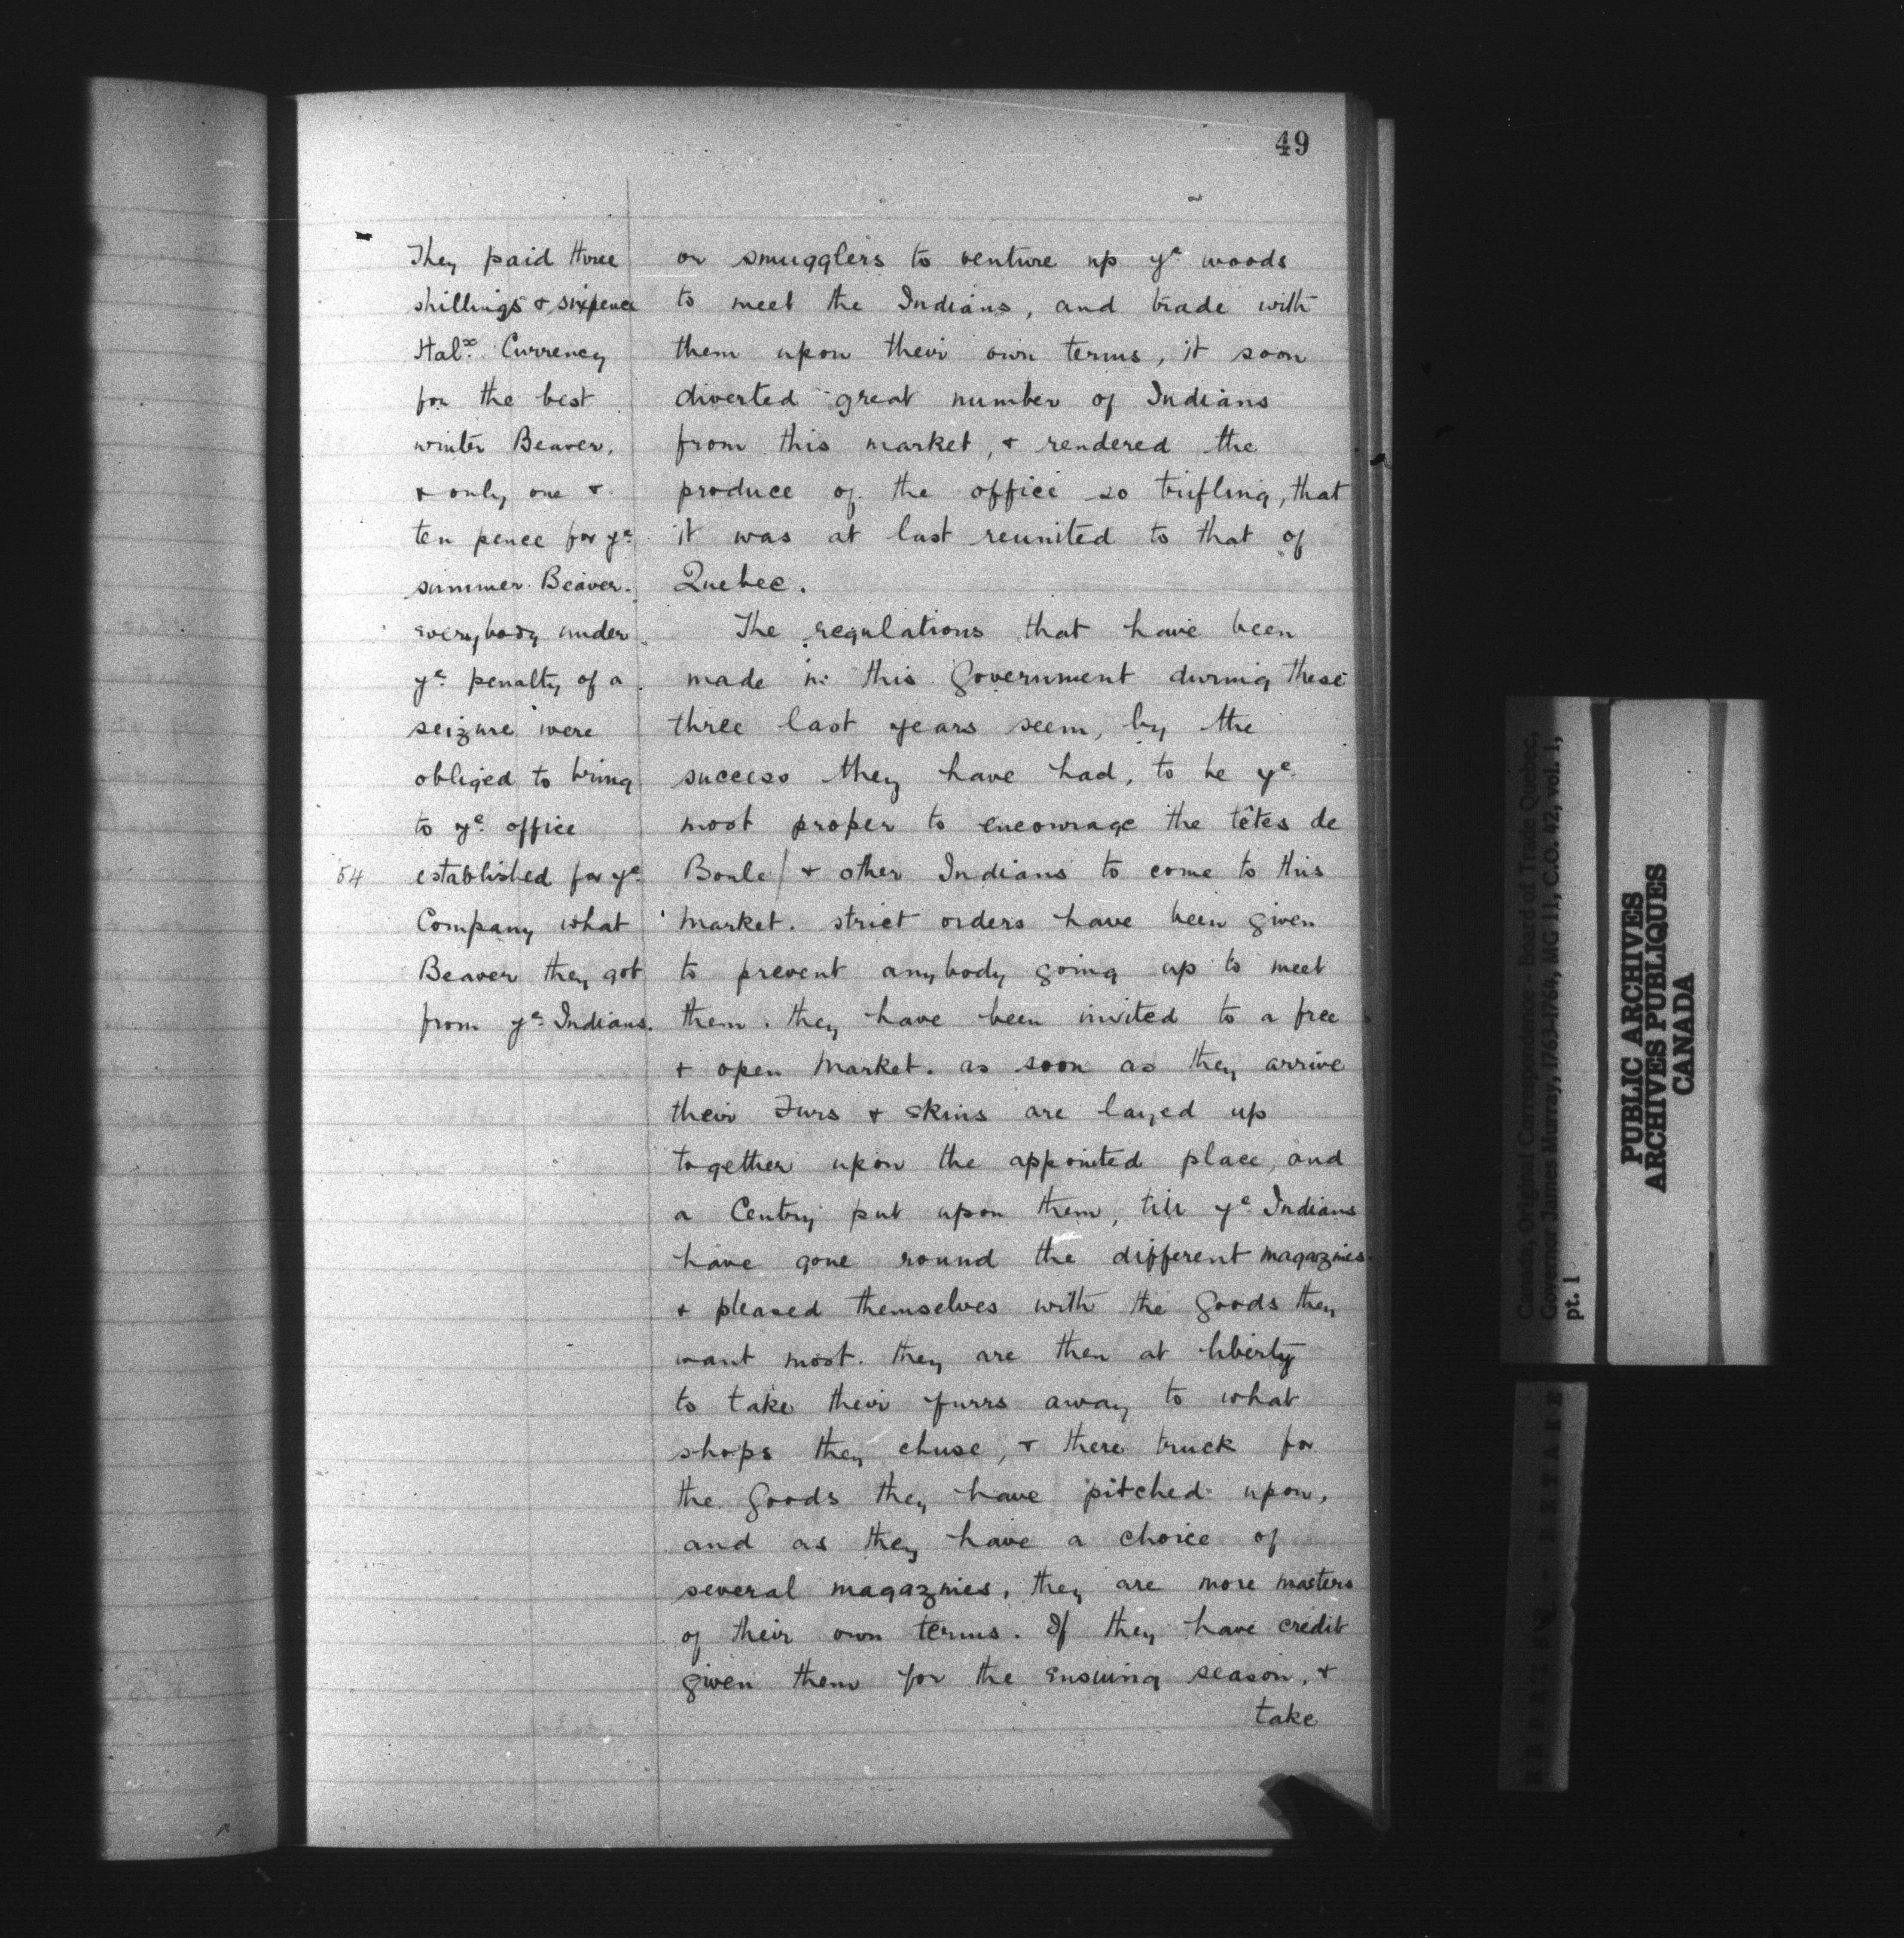 49
They paid three
shillings & sixpence
Hal.x Currency
for the best
winter Beaver,
& only one &
ten pence for ye
summer Beaver.
everybody under
ye penalty of a
seizure were
obliged to bring
to ye office
54
established for ye
Company what
Beaver they got
from ye Indians.
or smugglers to venture up ye woods
to meet the Indians, and trade with
them upon their own terms, it soon
diverted great number of Indians
from this market, & rendered the
produce of the office so trifling, that
it was at last reunited to that of
Quebec.
The regulations that have been
made in this Government during these
three last years seem, by the
success they have had, to be ye
most proper to encourage the têtes de
Boule/ & other Indians to come to this
market. strict orders have been given
to prevent anybody going up to meet
them. they have been invited to a free
& open market. as soon as they arrive
their Furs & skins are layed up
together upon the appointed place, and
a Centry put upon them, till ye Indians
have gone round the different magazines
& pleased themselves with the goods they
want most. they are then at liberty
to take their furrs away to what
shops they chuse, & there truck for
the goods they have pitched upon,
and as they have a choice of
several magazines, they are more masters
of their own terms. If they have credit
given them for the ensuing season, &
take
Canada, Original Correspondence - Board of Trade Quebec,
Governor James Murray, 1763-1764, MG 11, C.O. 42, vol. 1,
pt. 1
PUBLIC ARCHIVES
ARCHIVES PUBLIQUES
CANADA